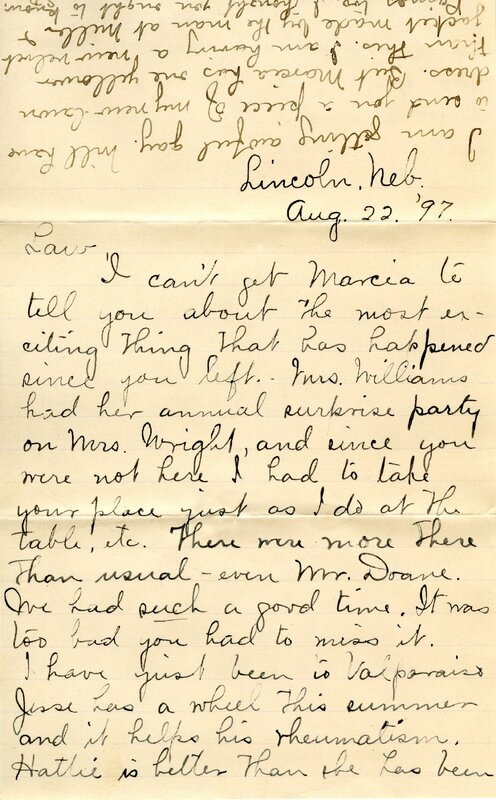 Lincoln, Neb.
Aug. 22. '97.
Law
I can't get Marcia to
tell you about the most ex-
citing thing that has happened
since you left. - Mrs. Williams
had her annual surprise party
on Mrs. Wright, and since you
were not here I had to take
your place just as I do at the
table, etc. There were more there
than usual - even Mr. Doane.
We had such a good time. It was
too bad you had to miss it.
I have just been to Valparaiso
Jesse has a wheel this summer
and it helps his rheumatism.
Hattie is better than she has been
I am getting awful gay. Will have
to send you a piece of my new lawn
dress. But Marcia has one yellower
than this. I am having a new velvet
jacket made by the man at Miller &
Paines too. I thought you ought to know.